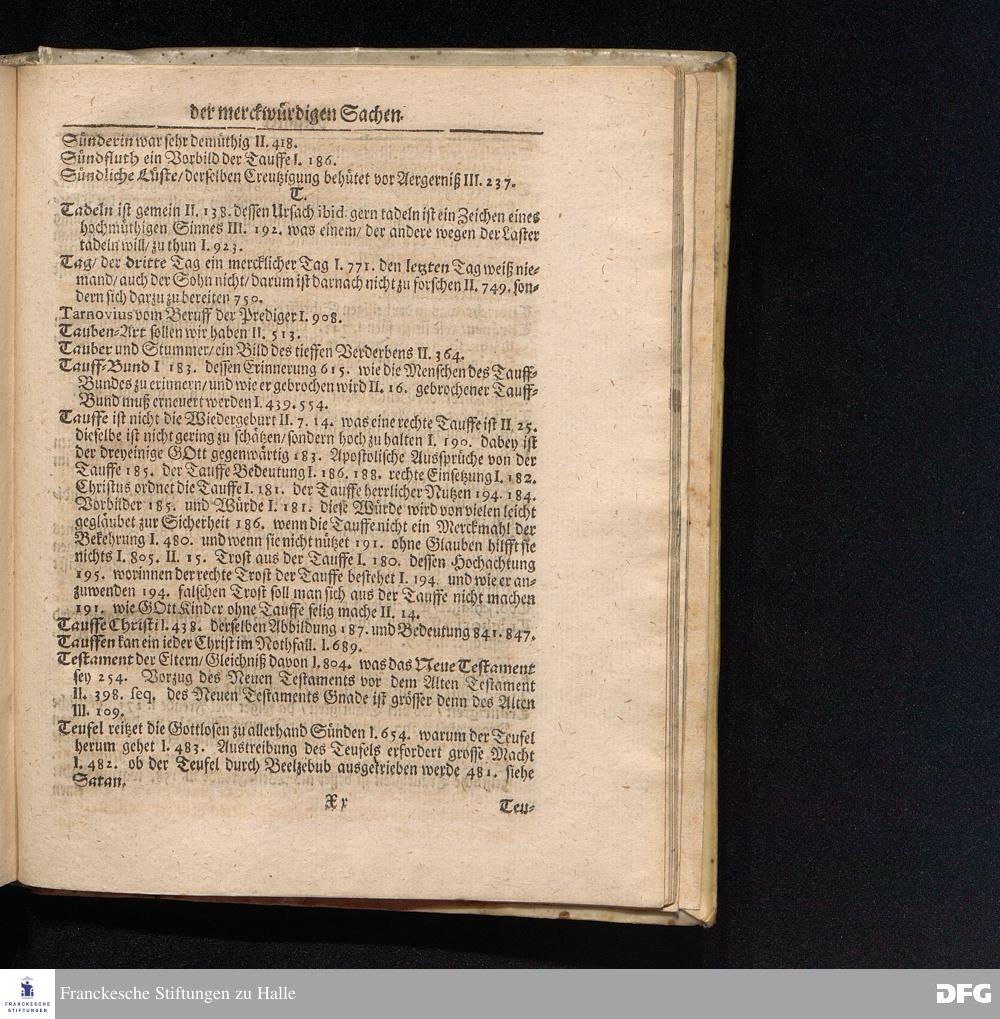 der merckwürdigen Sachen.
Sünderin war sehr demüthig II. 418.
Sündfluth ein Vorbild der Tauffe I. 186.
Sündliche Lüste/ derselben Creutzigung behütet vor Aergerniß III. 237.
T.
Tadeln ist gemein II. 138. dessen Ursach ibid. gern tadeln ist ein Zeichen eines
hochmüthigen Sinnes III. 192. was einem/ der andere wegen der Laster
tadeln will/ zu thun I. 923.
Tag/ der dritte Tag ein mercklicher Tag I. 771. den letzten Tag weiß nie-
mand/ auch der Sohn nicht/ darum ist darnach nicht zu forschen II. 749. son-
dern sich darzu zu bereiten 750.
Tarnovius vom Beruff der Prediger I. 908.
Tauben-Art sollen wir haben II. 513.
Tauber und Stummer/ ein Bild des tieffen Verderbens II. 364.
Tauff-Bund I 183. dessen Erinnerung 615. wie die Menschen des Tauff-
Bundes zu erinnern/ und wie er gebrochen wird II. 16. gebrochener Tauff-
Bund muß erneuert werden I. 439. 554.
Tauffe ist nicht die Wiedergeburt II. 7. 14. was eine rechte Tauffe ist II 25.
dieselbe ist nicht gering zu schätzen/ sondern hoch zu halten I. 190. dabey ist
der dreyeinige GOtt gegenwärtig 183. Apostolische Aussprüche von der
Tauffe 185. der Tauffe Bedeutung I. 186. 188. rechte Einsetzung I. 182.
Christus ordnet die Tauffe I. 181. der Tauffe herrlicher Nutzen 194. 184.
Vorbilder 185. und Würde I. 181. diese Würde wird von vielen leicht
gegläubet zur Sicherheit 186. wenn die Tauffe nicht ein Merckmahl der
Bekehrung I. 480. und wenn sie nicht nützet 191. ohne Glauben hilfft sie
nichts I. 805. II. 15. Trost aus der Tauffe I. 180. dessen Hochachtung
195. worinnen der rechte Trost der Tauffe bestehet I. 194. und wie er an-
zuwenden 194. falschen Trost soll man sich aus der Tauffe nicht machen
191. wie GOtt Kinder ohne Tauffe selig mache II. 14.
Tauffe Christi I. 438. derselben Abbildung 187. und Bedeutung 841. 847.
Tauffen kan ein ieder Christ im Nothfall. I. 689.
Testament der Eltern/ Gleichniß davon I. 804. was das Neue Testament
sey 254. Vorzug des Neuen Testaments vor dem Alten Testament
II. 398. seq. des Neuen Testaments Gnade ist grösser denn des Alten
III. 109.
Teufel reitzet die Gottlosen zu allerhand Sünden I. 654. warum der Teufel
herum gehet I. 483. Austreibung des Teufels erfordert grosse Macht
I. 482. ob der Teufel durch Beelzebub ausgetrieben werde 481. siehe
Satan.
Xx
Teu-
FRANCKESCHE
STIFTUNGEN
Franckesche Stiftungen zu Halle
DFG